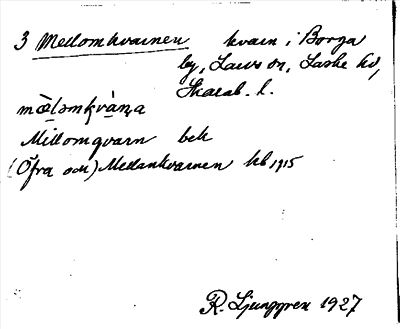 3 Mellomkvarnen kvarn i Borga
by, Laurs sn, Laske hd,
Skarab. l.
mœ̀lɘmkvàn̥a
Millomqvarn bek
(Öfra och) Mellankvarnen kb 1915
R. Ljunggren 1927